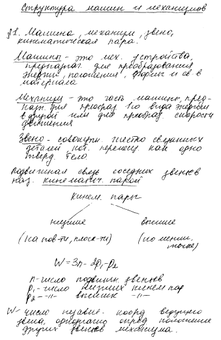 Структура машин и механизмов
§1. Машина, механизм, звено,
кинематическая пара.
Машина - это мех. устройство,
предназнач. для преобразования
энергии, положения, формы и св-в
материала
Механизм - это часть машины, пред-
назн. для преобраз. 1го вида энергии
в другой или для преобраз. скорости
движения
Звено - совокупн. жестко связанных
деталей кот. перемещ. как одно
тверд. тело
Подвижная связь соседних звеньев
наз. кинемат. парой
Кинем. пары
низшие высшие
(по пов-ти, плоск-ти) (по линии,
точке)
W = 3n - 2p₁ - p₂
n - число подвижн. звеньев
p₁ - число низших кинем. пар
p₂ - —"— высших —"—
W - число независ. коорд. ведущего
звена, однозначно опред. положения
других звеньев механизма.